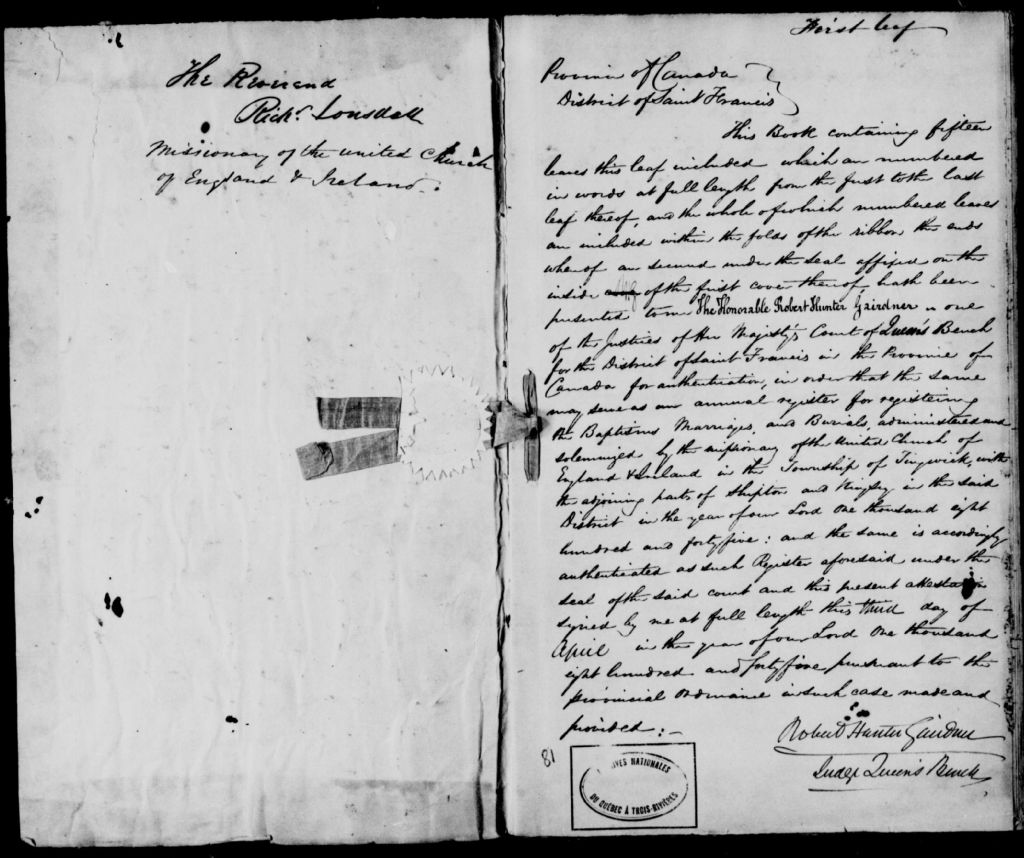 The Reverend
Richd. Lonsdell
Missionary of the United Church
of England & Ireland.
First leaf
Province of Canada
District of Saint Francis
This Book containing fifteen
leaves this leaf included which are numbered
in words at full length from the first to the last
leaf thereof, and the whole of which numbered leaves
are included within the folds of the ribbon the ends
whereof are secured under the seal affixed on the
inside of the first cover thereof, hath been
presented to me The Honorable Robert Hunter Gairdner one
of the Justices of Her Majesty's Court of Queen's Bench
for the District of Saint Francis in the Province of
Canada for authentication, in order that the same
may serve as an annual register for registering
the Baptisms Marriages, and Burials, administered and
solemnized by the missionary of the United Church of
England & Ireland in the Township of Tingwick, with
the adjoining parts of Shipton and Kingsey in the said
District in the year of our Lord One thousand eight
hundred and forty five: and the same is accordingly
authenticated as such Register aforesaid under the
seal of the said court and this present attestation
signed by me at full length this third day of
April in the year of our Lord One thousand
eight hundred and forty five pursuant to the
provincial Ordinance in such case made and
provided:-
Robert Hunter Gairdner
Judge Queen's Bench
81
IVES NATIONALES
DU QUÉBEC À TROIS-RIVIÈRES